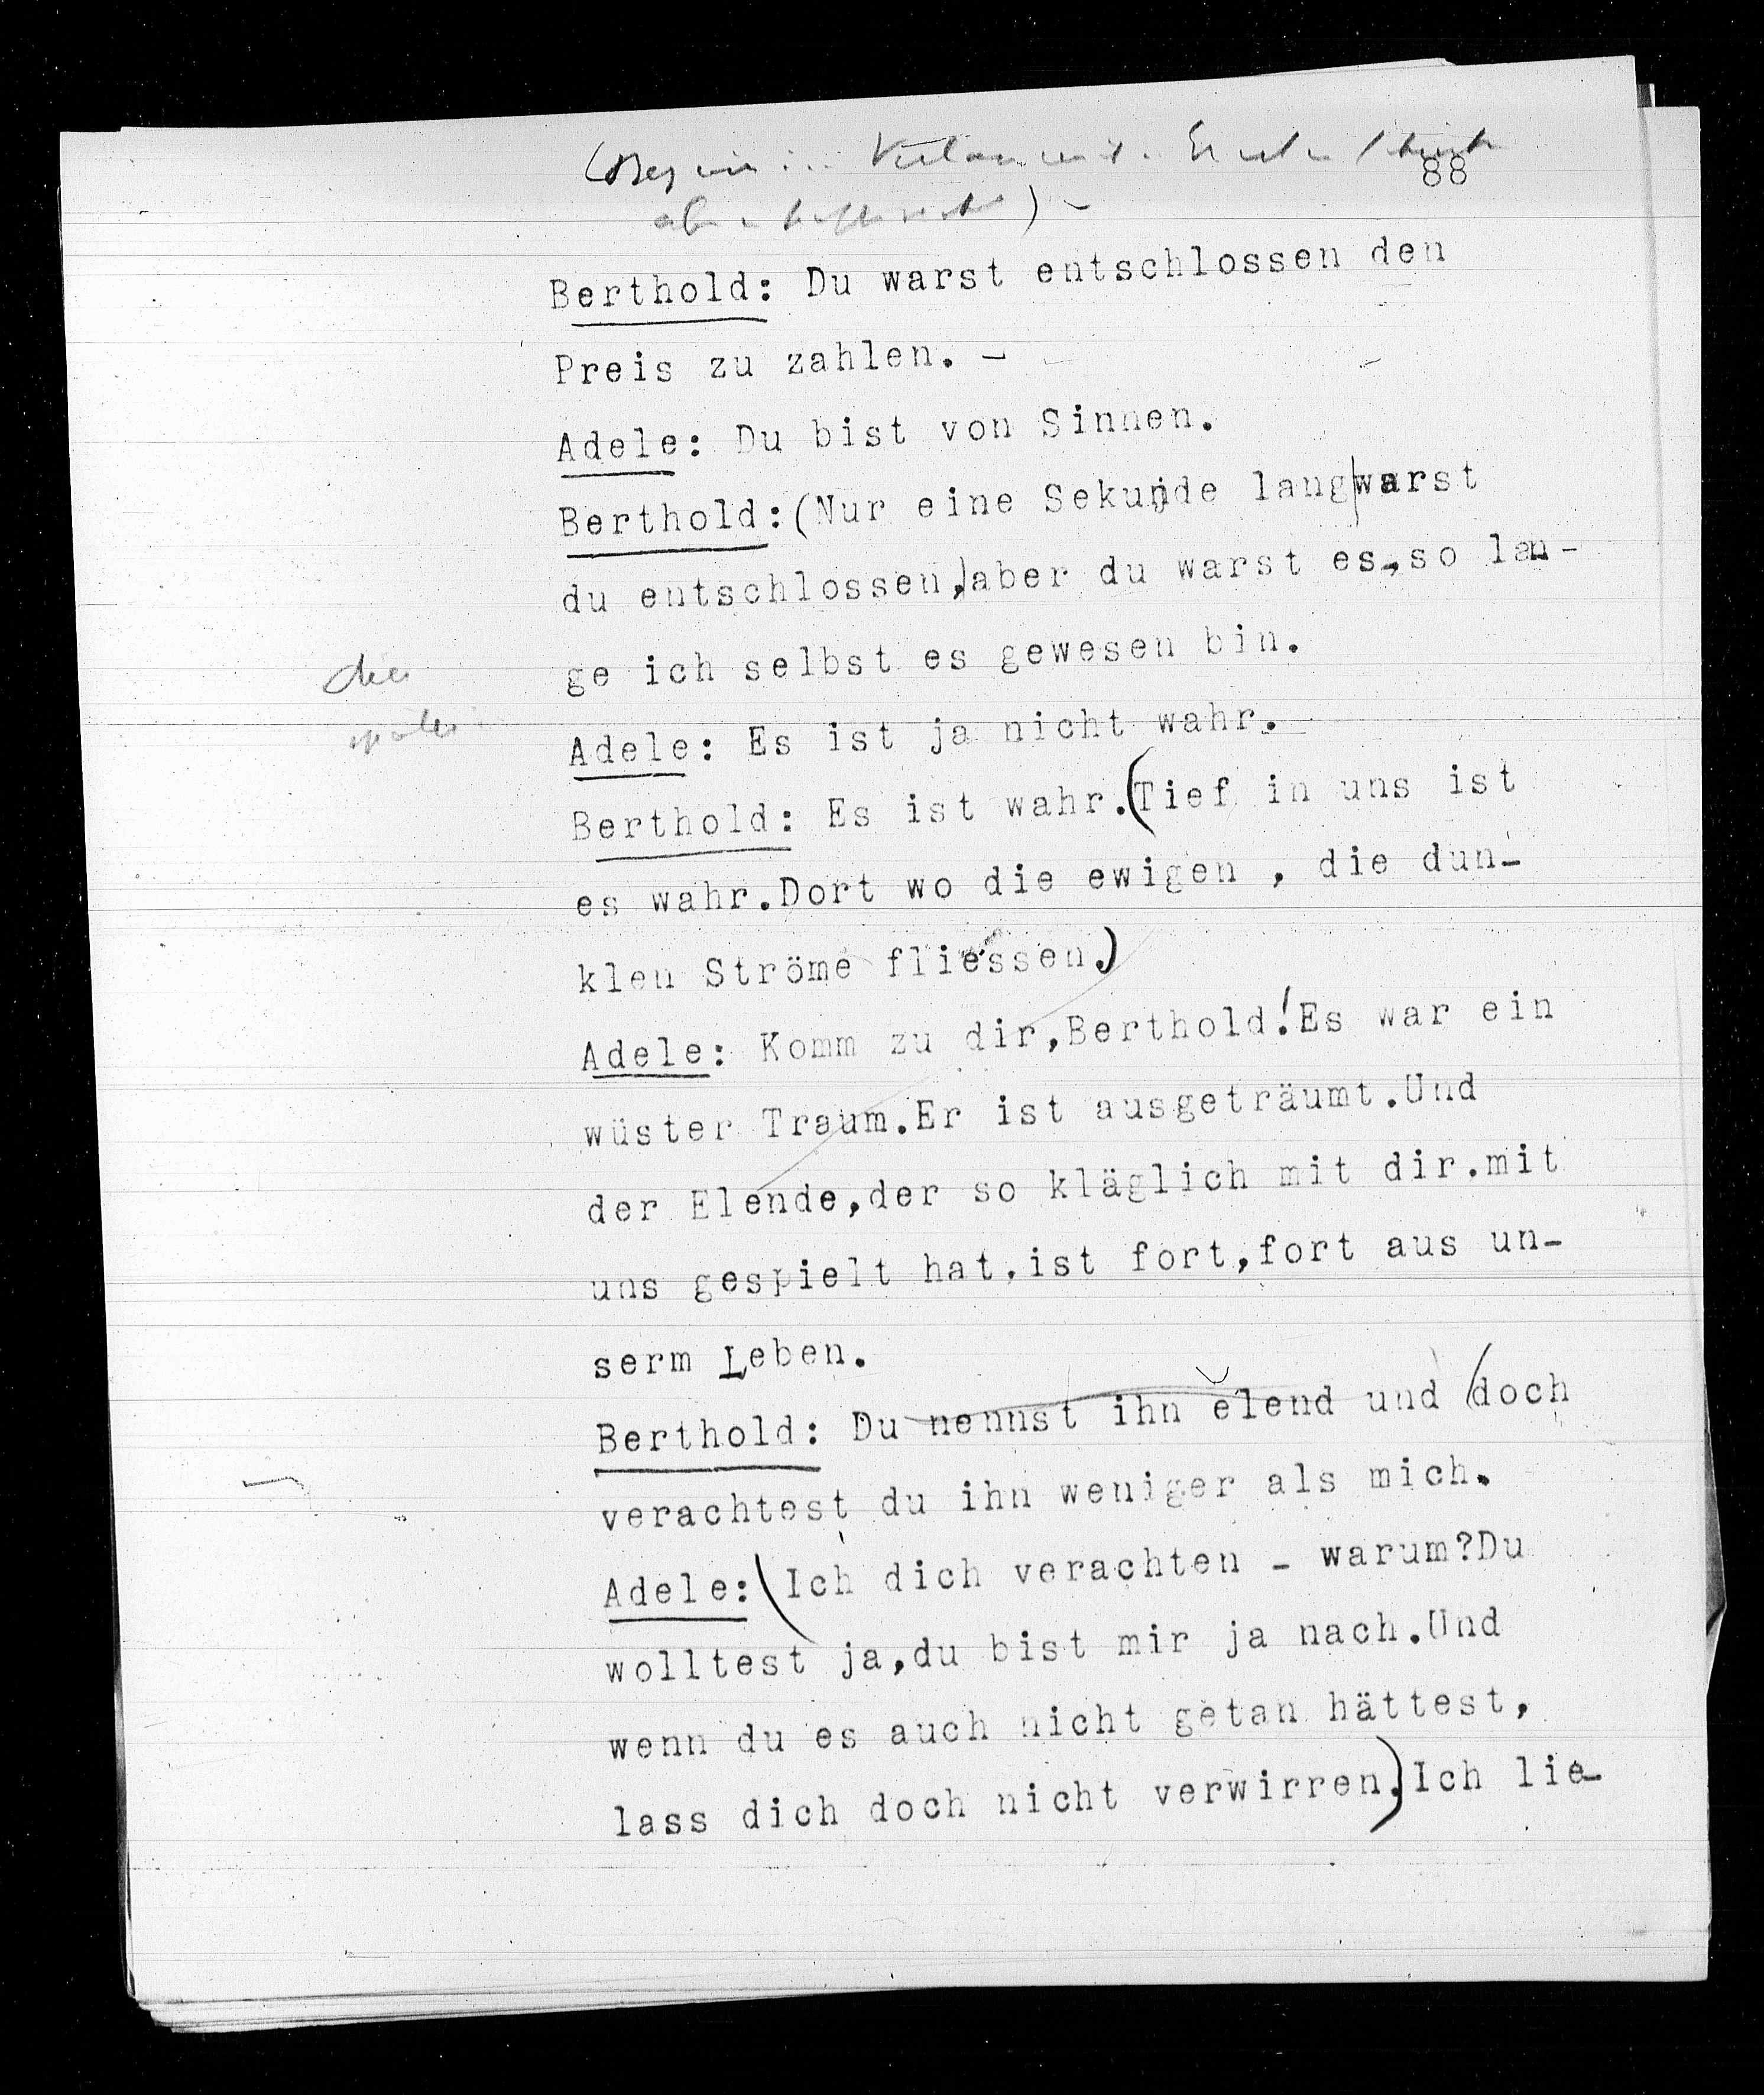 88
Berthold: Du warst entschlossen den
Preis zu zahlen. –
Adele: Du bist von Sinnen.
Berthold: (Nur eine Sekunde lang warst
du entschlossen,) aber du warst es, so lan-
ge ich selbst es gewesen bin.
die
später
Adele: Es ist ja nicht wahr.
Berthold: Es ist wahr. (Tief in uns ist
es wahr.Dort wo die ewigen , die dun-
klen Ströme fliessen.)
Adele: Komm zu dir,Berthold!Es war ein
wüster Traum.Er ist ausgeträumt.Und
der Elende,der so kläglich mit dir.mit
uns gespielt hat.ist fort,fort aus un-
serm Leben.
Berthold: Du nennst ihn elend und (doch
verachtest du ihn weniger als mich.
Adele: (Ich dich verachten - warum?Du
wolltest ja,du bist mir ja nach.Und
wenn du es auch nicht getan hättest,
lass dich doch nicht verwirren.)Ich lie-